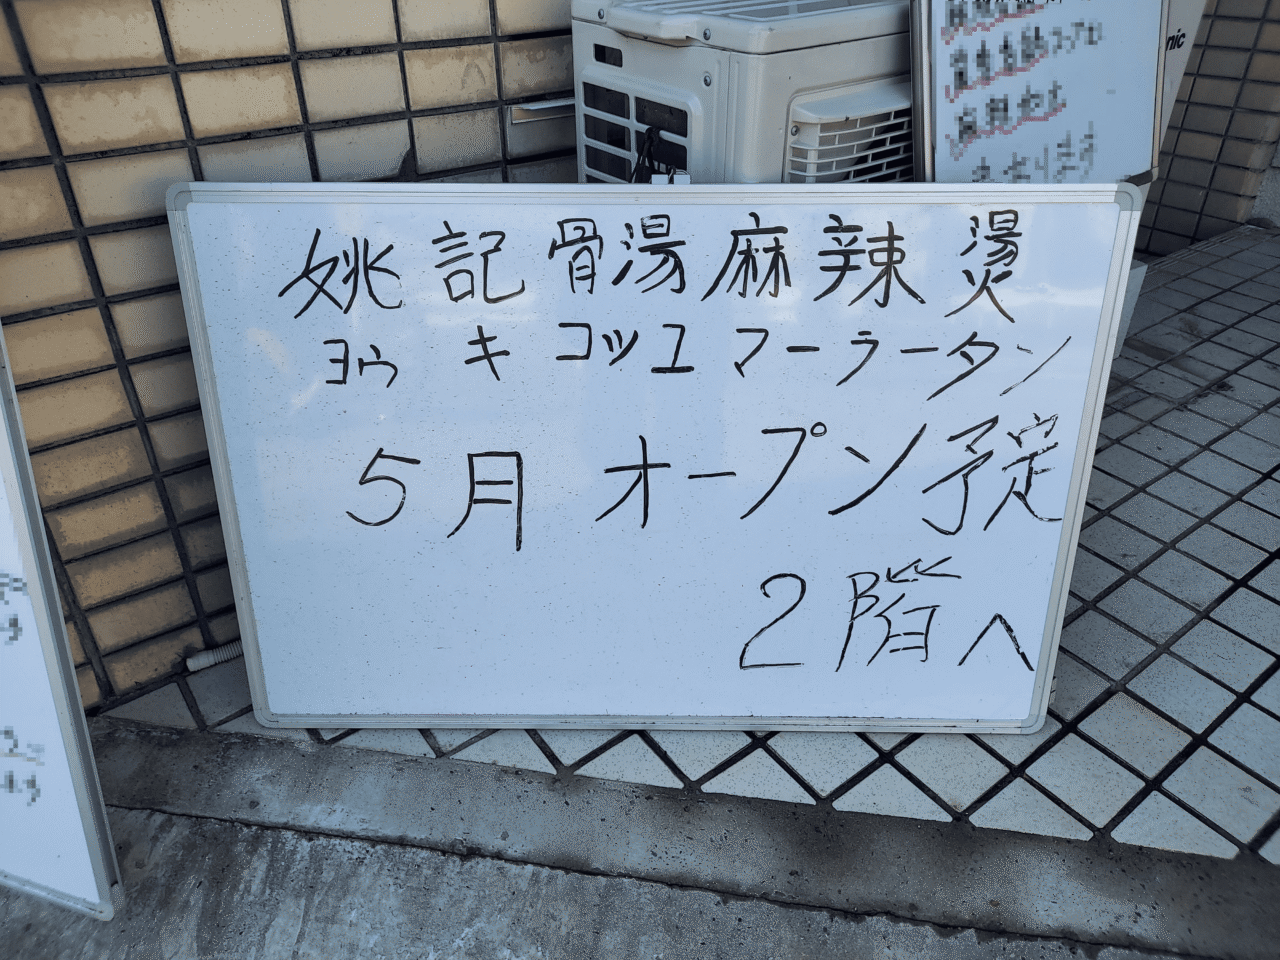 姚記骨湯麻辣燙
ヨウ キ コツユ マーラータン
5月 オープン予定
2階へ
nic